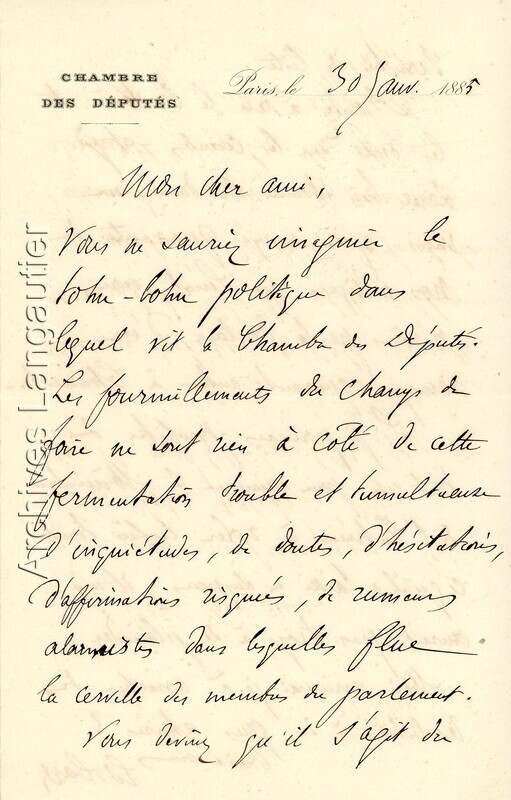 CHAMBRE
DES DÉPUTÉS
Paris, le 30 Janv. 1885
Mon cher ami,
Vous ne sauriez imaginer le
tohu-bohu politique dans
lequel vit la Chambre des Députés.
Les fourmillements du champ de
foire ne sont rien à côté de cette
fermentation trouble et tumultueuse
d'inquiétudes, de doutes, d'hésitations,
d'affirmations risquées, de rumeurs
alarmistes dans lesquelles flue
la cervelle des membres du parlement.
Vous devinez qu'il s'agit du
Archives Langautier